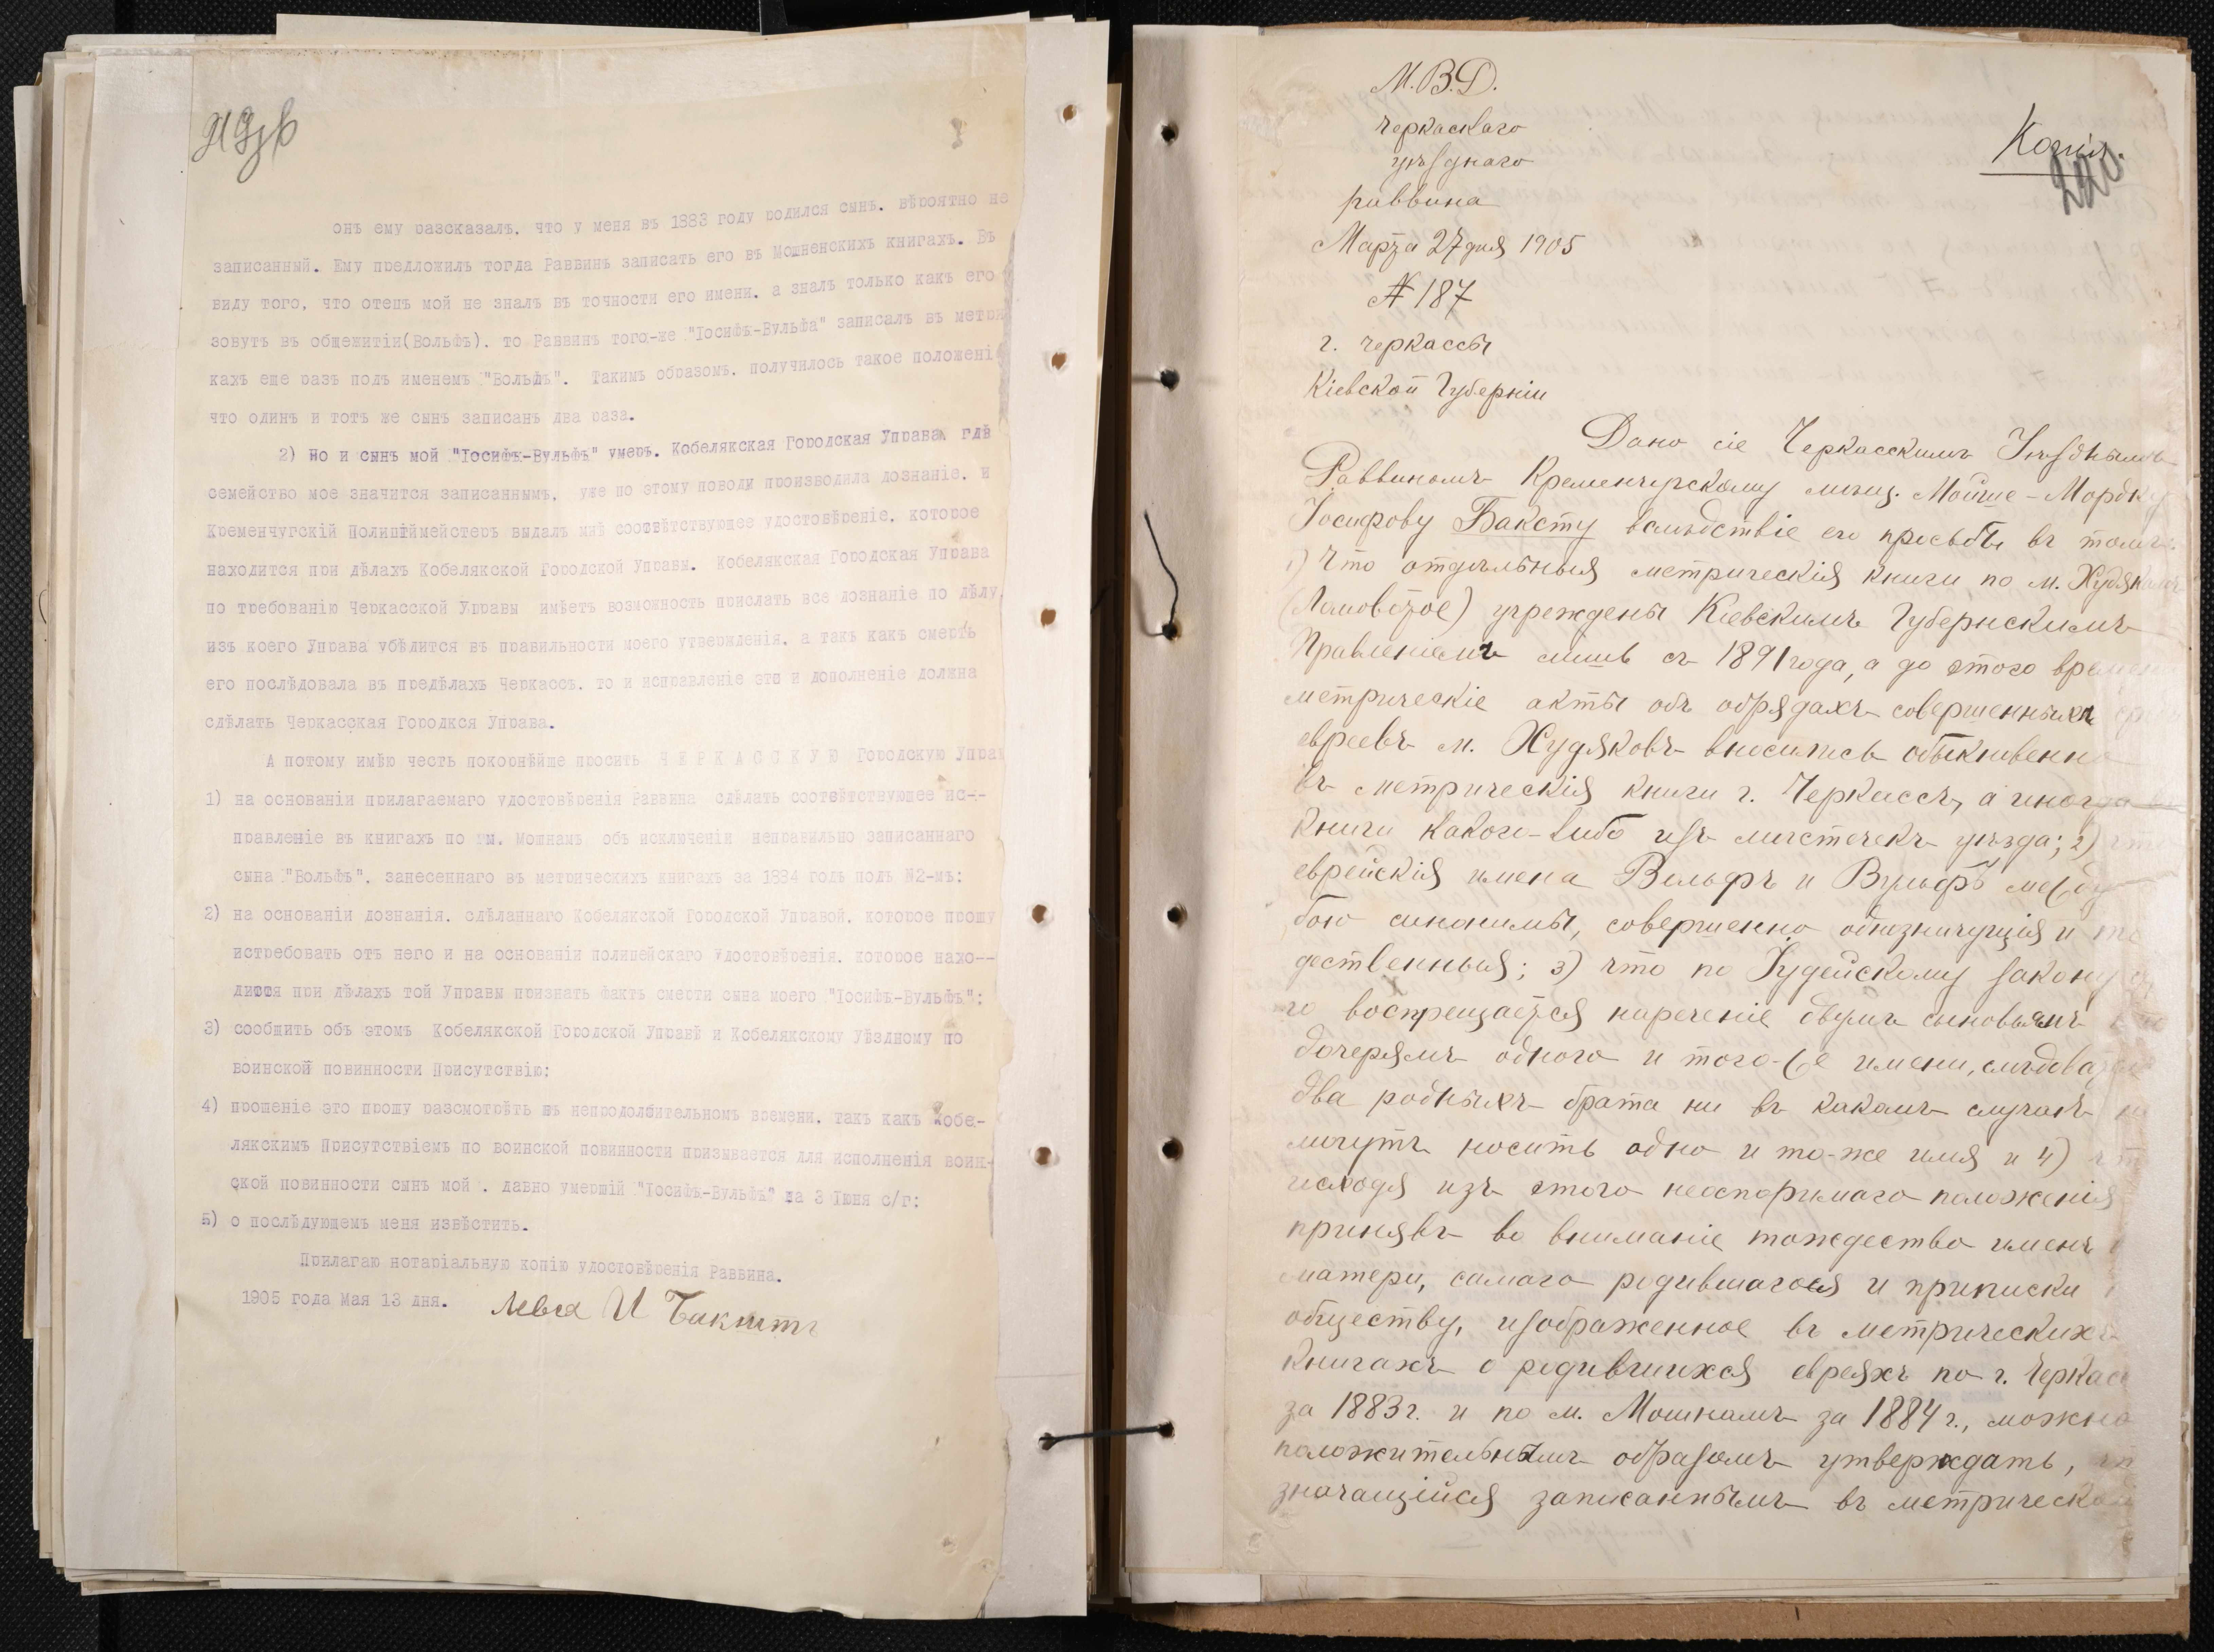 онъ ему разсказалъ, что у меня въ 1883 году родился сынъ, вѣроятно не
записанный. Ему предложилъ тогда Раввинъ записать его въ Мошненскихъ книгахъ. Въ
виду того, что отецъ мой не зналъ въ точности его имени, а зналъ только какъ его
зовутъ въ общежитіи(Вольфъ), то Раввинъ того-же "Іосифъ-Вульфа" записалъ въ метри
кахъ еще разъ подъ именемъ "Вольфъ". Такимъ образомъ, получилось такое положені
что одинъ и тотъ же сынъ записанъ два раза.
2) Но и сынъ мой "Іосифъ-Вульфъ" умеръ. Кобелякская Городская Управа, гдѣ
семейство мое значится записаннымъ, уже по этому поводу производила дознаніе, и
Кременчугскій Полиціймейстеръ выдалъ мнѣ соотвѣтствующее удостовѣреніе, которое
находится при дѣлахъ Кобелякской Городской Управы. Кобелякская Городская Управа
по требованію Черкасской Управы имѣетъ возможность прислать все дознаніе по дѣлу,
изъ коего Управа убѣдится въ правильности моего утвержденія, а такъ какъ смерть
его послѣдовала въ предѣлахъ Черкассъ, то и исправленіе это и дополненіе должна
сдѣлать Черкасская Городкся Управа.
А потому имѣю честь покорнѣйше просить ЧЕРКАССКУЮ Городскую Управ
1) на основаніи прилагаемаго удостовѣренія Раввина сдѣлать соотвѣтствующее ис--
правленіе въ книгахъ по мм. Мошнамъ объ исключеніи неправильно записаннаго
сына "Вольфъ", занесеннаго въ метрическихъ книгахъ за 1884 годъ подъ №2-мъ;
2) на основаніи дознанія, сдѣланнаго Кобелякской Городской Управой, которое прошу
истребовать отъ него и на основаніи полицейскаго удостовѣренія, которое нахо--
дится при дѣлахъ той Управы признать фактъ смерти сына моего "Іосифъ-Вульфъ";
3) сообщить объ этомъ Кобелякской Городской Управѣ и Кобелякскому Уѣздному по
воинской повинности Присутствію;
4) прошеніе это прошу разсмотрѣть въ непродолжительномъ времени, такъ какъ Кобе-
лякскимъ Присутствіемъ по воинской повинности призывается для исполненія воин-
ской повинности сынъ мой, давно умершій "Іосифъ-Вульфъ" на 3 Іюня с/г;
5) о послѣдующемъ меня извѣстить.
Прилагаю нотаріальную копію удостовѣренія Раввина.
1905 года Мая 13 дня. И Бакштъ
М.В.Д.
Черкаскаго
уѣзднаго
раввина
Марта 27 дня 1905
№ 187
г. Черкассы
Кіевской Губерніи
Копія.
220.
Дано сіе Черкасскимъ Уѣзднымъ
Раввиномъ Кременчугскому мѣщ. Мойше-Мордку
Іосифову Баксту вслѣдствіе его просьбы въ томъ:
1) Что отдѣльныя метрическія книги по м. Худякамъ
учреждены Кіевскимъ Губернскимъ
Правленіемъ лишь съ 1891 года, а до этого времени
метрическіе акты объ обрядахъ совершенныхъ среди
евреевъ м. Худяковъ вносились обыкновенно
въ метрическія книги г. Черкассъ, а иногда въ
книги какого-либо изъ мѣстечекъ уѣзда; 2) что
еврейскія имена Вольфъ и Вульфъ между
бою синонимы, совершенно однозначущія и то
дественныя; 3) что по Іудейскому закону
го воспрещается нареченіе двумъ сыновьямъ
дочерямъ одного и того-же имени, слѣдоват
два родныхъ брата ни въ какомъ случаѣ не
могутъ носить одно и то-же имя и 4) что
исходя изъ этого неоспоримаго положенія
принявъ во вниманіе тождество именъ
матери, самаго родившагося и приписки
обществу, изображенное въ метрическихъ
книгахъ о родившихся евреяхъ по г. Черкасс
за 1883 г. и по м. Мошнамъ за 1884 г., можно
положительнымъ образомъ утверждать, что
значащійся записаннымъ въ метрической